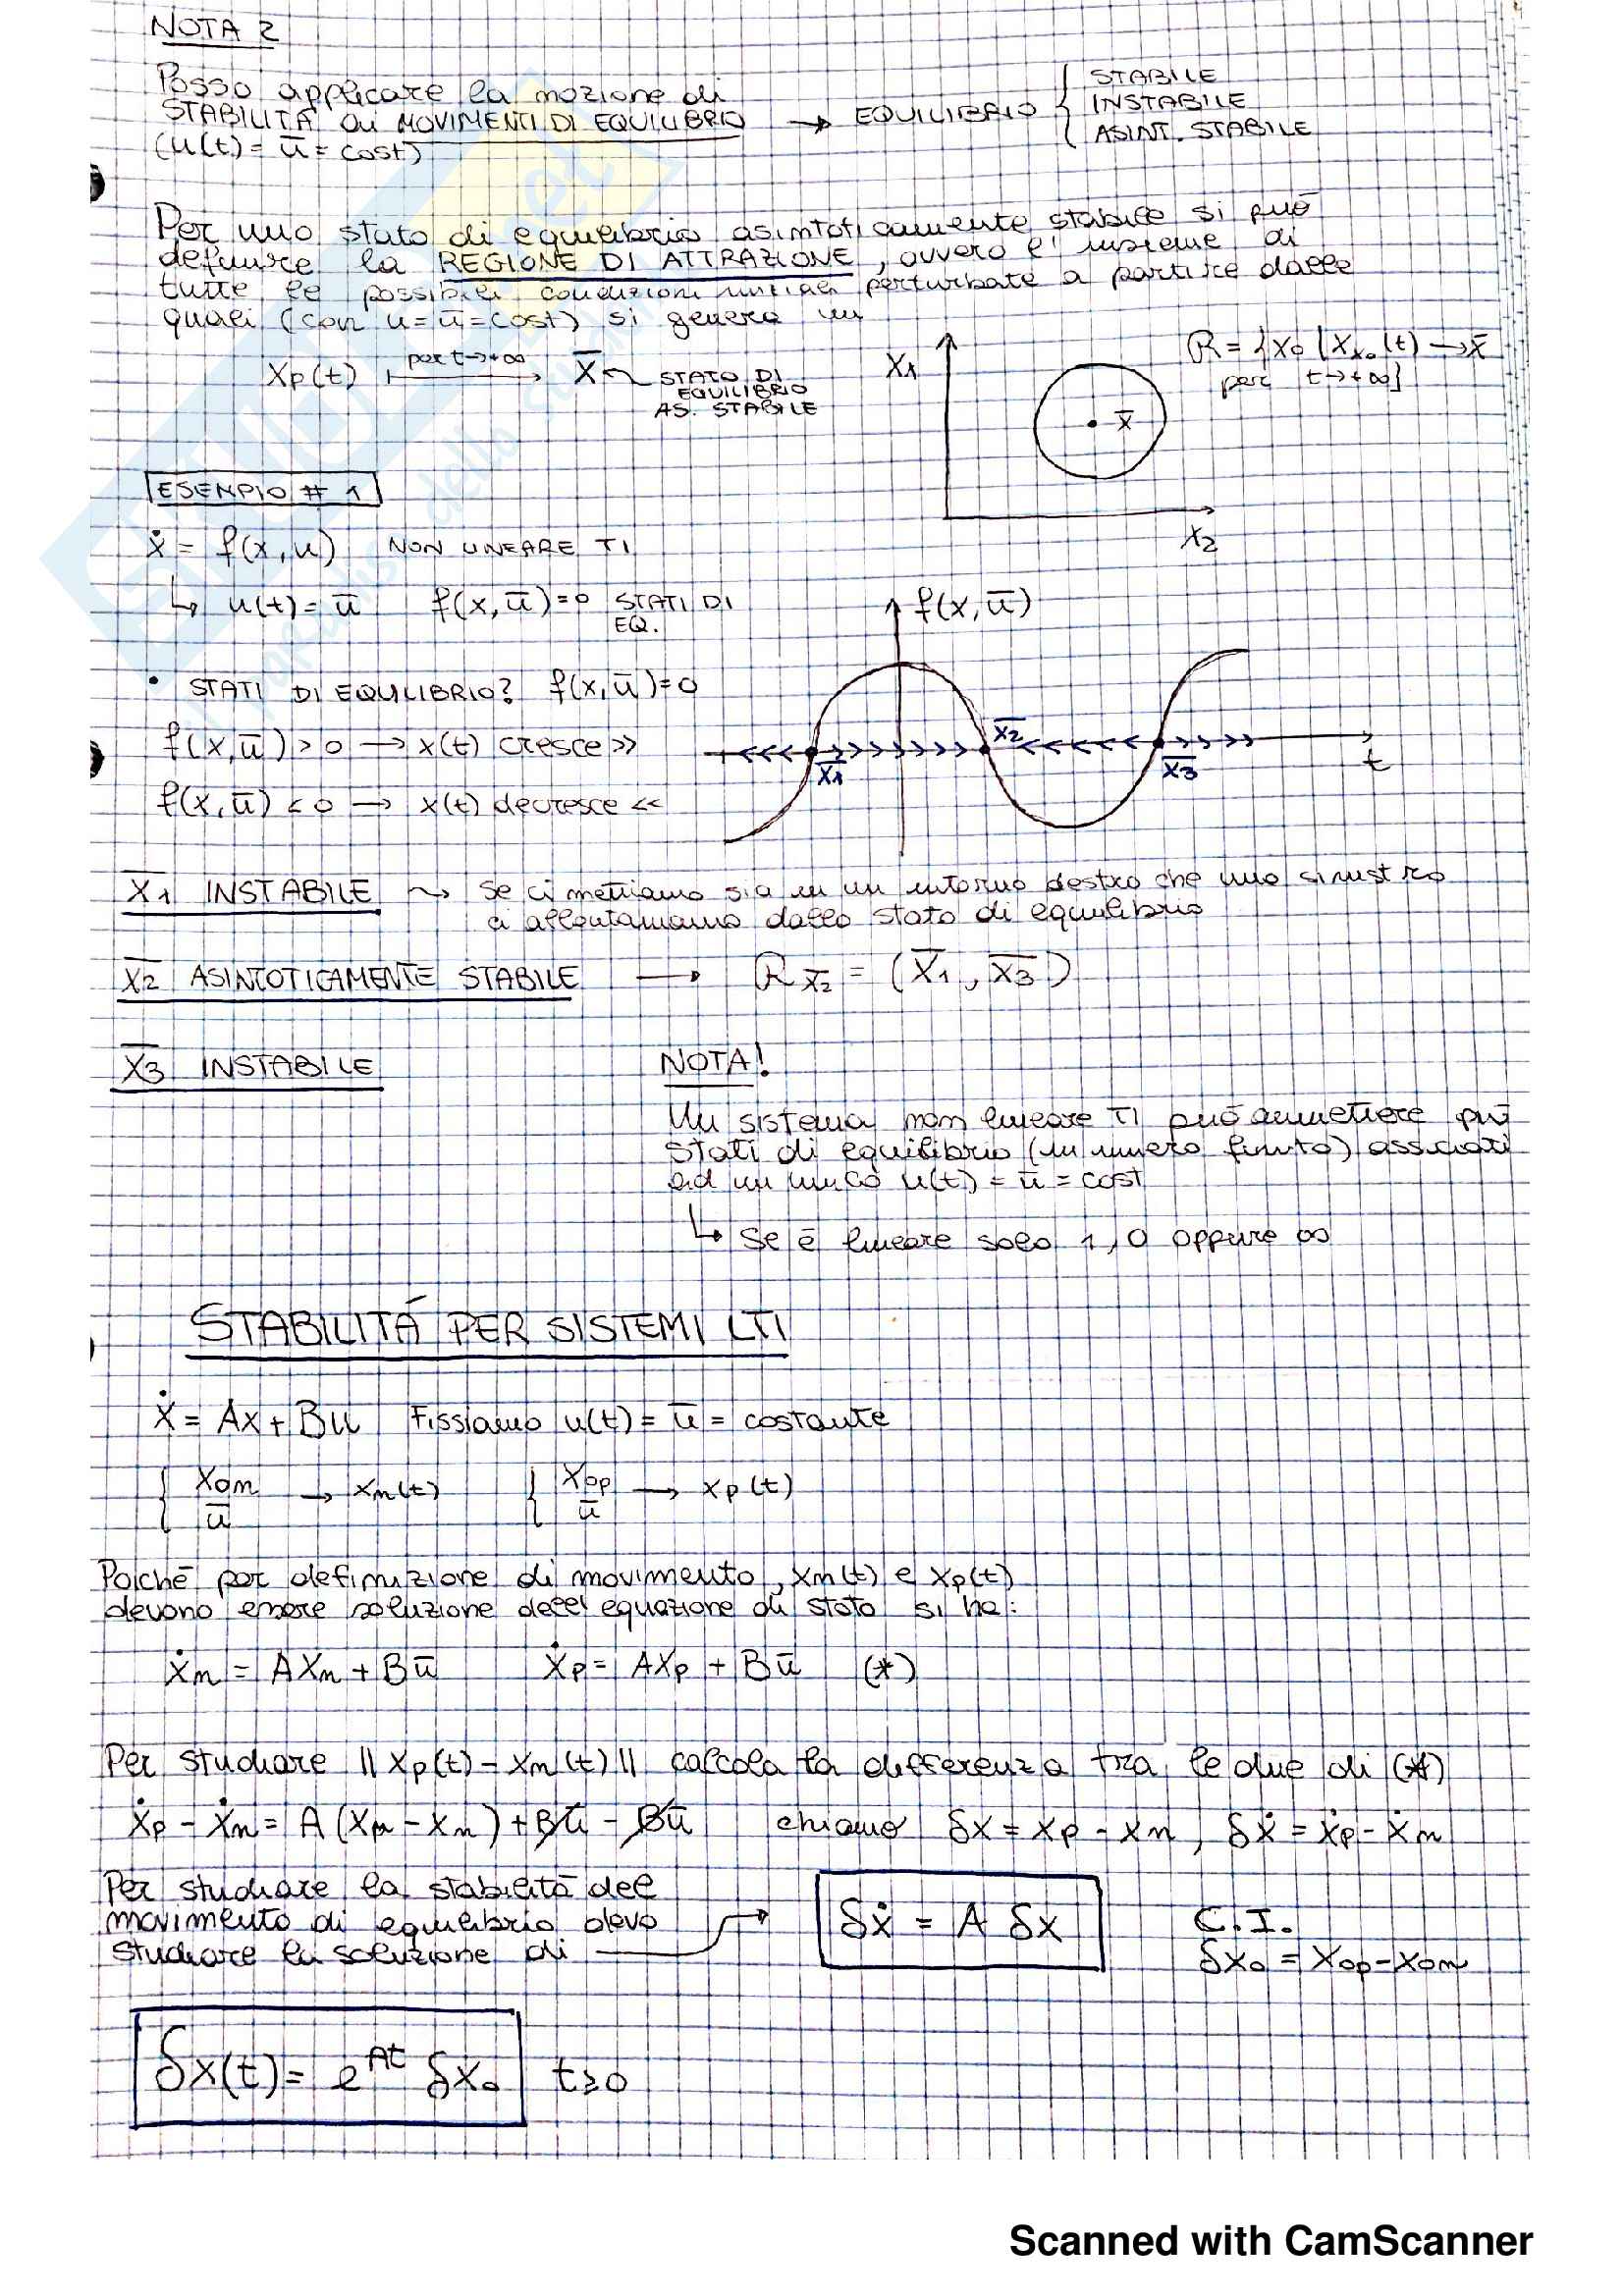 NOTA 2
Posso applicare la nozione di
STABILITÀ ai MOVIMENTI DI EQUILIBRIO → EQUILIBRIO { STABILE
INSTABILE
ASINT. STABILE
(u(t) = ū = cost)
Per uno stato di equilibrio asintoticamente stabile si può
definire la REGIONE DI ATTRAZIONE, ovvero l'insieme di
tutte le possibili condizioni iniziali perturbate a partire dalle
quali (con u = ū = cost) si genera un
xp(t) per t→+∞ x̄ STATO DI
EQUILIBRIO
AS. STABILE
X1
R = {x0 | Xx0(t) → x̄
per t→+∞}
x̄
X2
ESEMPIO # 1
ẋ = f(x,u) NON LINEARE TI
↳ u(t) = ū f(x,ū)=0 STATI DI
EQ.
f(x,ū)
• STATI DI EQUILIBRIO? f(x,ū)=0
f(x,ū) > 0 → x(t) cresce >>
f(x,ū) < 0 → x(t) decresce <<
x̄1
x̄2
x̄3
t
x̄1 INSTABILE ⤳ se ci mettiamo sia in un intorno destro che uno sinistro
ci allontaniamo dallo stato di equilibrio
x̄2 ASINTOTICAMENTE STABILE → Rx̄2 = (x̄1, x̄3)
x̄3 INSTABILE
NOTA!
Un sistema non lineare TI può ammettere più
stati di equilibrio (in numero finito) associati
ad un unico u(t) = ū = cost
↳ se è lineare solo 1, 0 oppure ∞
STABILITÁ PER SISTEMI LTI
ẋ = Ax + Bu Fissiamo u(t) = ū = costante
{ xon → xn(t) { xop → xp(t)
ū ū
Poiché per definizione di movimento, xn(t) e xp(t)
devono essere soluzione dell'equazione di stato si ha:
ẋn = Axn + Bū ẋp = Axp + Bū (*)
Per studiare ||xp(t) - xn(t)|| calcola la differenza tra le due di (*)
ẋp - ẋn = A(xp - xn) + Bū - Bū chiamo δx = xp - xn, δẋ = ẋp - ẋn
Per studiare la stabilità del
movimento di equilibrio devo
studiare la soluzione di
δẋ = A δx
C.I.
δx0 = xop - xon
δx(t) = e^At δx0 t≥0
Scanned with CamScanner